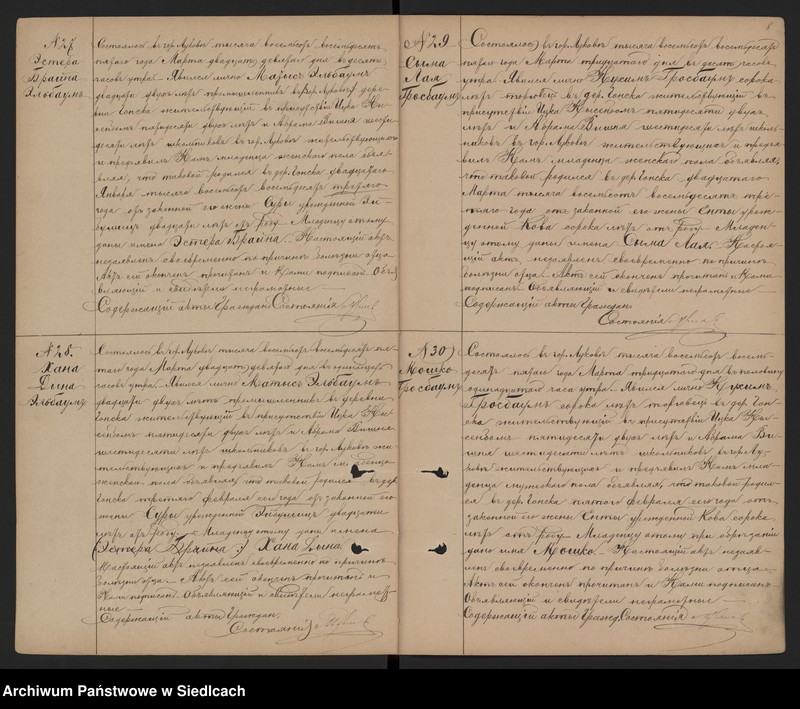 № 27
Эстера
Брайна
Эльбаумъ
Состоялось въ гор. Луковѣ тысяча восемьсотъ восемьдесятъ
пятаго года Марта двадцать девятаго дня въ десять
часовъ утра. Явился лично Матысъ Эльбаумъ
двадцати двухъ лѣтъ
жительствующій въ присутствіи Ицка
пятидесяти двухъ лѣтъ и Абрама Вишня шести
десяти лѣтъ школьниковъ въ гор. Луковѣ жительствующихъ
и предъявилъ Намъ младенца женскаго пола объя-
вляя, что таковой родился въ дер. Гонска двадцатаго
Января тысяча восемьсотъ восемьдесятъ третьяго
года отъ законной его жены Суры урожденной
двадцати лѣтъ отъ роду. Младенцу этому
даны имена Эстера Брайна. Настоящій актъ
незаявленъ своевременно по причинѣ болѣзни отца.
Актъ сей оконченъ прочитанъ и Нами подписанъ. Объя
вляющій и свидѣтели неграмотные
Содержащій акты Граждан. Состоянія
№ 28.
Хана
Дына
Эльбаумъ
Состоялось въ гор. Луковѣ тысяча восемьсотъ восемьдесятъ пя-
таго года Марта двадцать девятаго дня въ одинадцать
часовъ утра. Явился лично Матысъ Эльбаумъ
двадцати двухъ лѣтъ въ деревни
Гонска жительствующій въ присутствіи Ицка
пятидесяти двухъ лѣтъ и Абрама Вишня
шестидесяти лѣтъ школьниковъ въ гор. Луковѣ жи-
тельствующихъ и предъявилъ Намъ младенца
женскаго пола объявляя, что таковой родился въ дер.
Гонска третьяго Февраля сего года отъ законной его
жены Суры урожденной двадцати
лѣтъ отъ роду. Младенцу этому даны имена
(Эстера Брайна) Хана Дына.
Настоящій актъ незаявленъ своевременно по причинѣ
болѣзни отца. Актъ сей оконченъ прочитанъ и
Нами подписанъ. Объявляющій и свидѣтели неграмот-
ные
Содержащій акты Граждан.
Состоянія
8
№ 29
Сына
Лая
Гросбаумъ
Состоялось въ гор. Луковѣ тысяча восемьсотъ восемьдесятъ
пятаго года Марта тридцатаго дня въ десять часовъ
утра. Явился лично Нусимъ Гросбаумъ сорока
лѣтъ торговецъ въ дер. Гонска жительствующій въ
присутствіи Ицка пятидесяти двухъ
лѣтъ и Абрама Вишня шестидесяти лѣтъ школь-
никовъ въ гор. Луковѣ жительствующихъ и предъя-
вилъ Намъ младенца женскаго пола объявляя,
что таковой родился въ дер. Гонска двадцатаго
Марта тысяча восемьсотъ восемьдесятъ тре-
тьяго года отъ законной его жены Енты урож-
денной Кова сорока лѣтъ отъ роду. Младен-
цу этому даны имена Сына Лая. Настоя-
щій актъ незаявленъ своевременно по причинѣ
болѣзни отца. Актъ сей оконченъ прочитанъ и Нами
подписанъ. Объявляющій и свидѣтели неграмотные
Содержащій акты Граждан.
Состоянія
№ 30
Мошко
Гросбаумъ
Состоялось въ гор. Луковѣ тысяча восемьсотъ восемь-
десятъ пятаго года Марта тридцатаго дня въ половину
одинадцатаго часа утра. Явился лично Нусимъ
Гросбаумъ сорока лѣтъ торговецъ въ дер. Гон-
ска жительствующій въ присутствіи Ицка
пятидесяти двухъ лѣтъ и Абрама Ви-
шня шестидесяти лѣтъ школьниковъ въ гор. Лу-
ковѣ жительствующихъ и предъявилъ Намъ мла-
денца мужескаго пола объявляя, что таковой родил-
ся въ дер. Гонска пятаго Февраля сего года отъ
законной его жены Енты урожденной Кова сорока
лѣтъ отъ роду. Младенцу этому при обрѣзаніи
дано имя Мошко. Настоящій актъ незаяв-
ленъ своевременно по причинѣ болѣзни отца.
Актъ сей оконченъ прочитанъ и Нами подписанъ.
Объявляющій и свидѣтели неграмотные
Содержащій акты Гражд. Состоянія
Archiwum Państwowe w Siedlcach